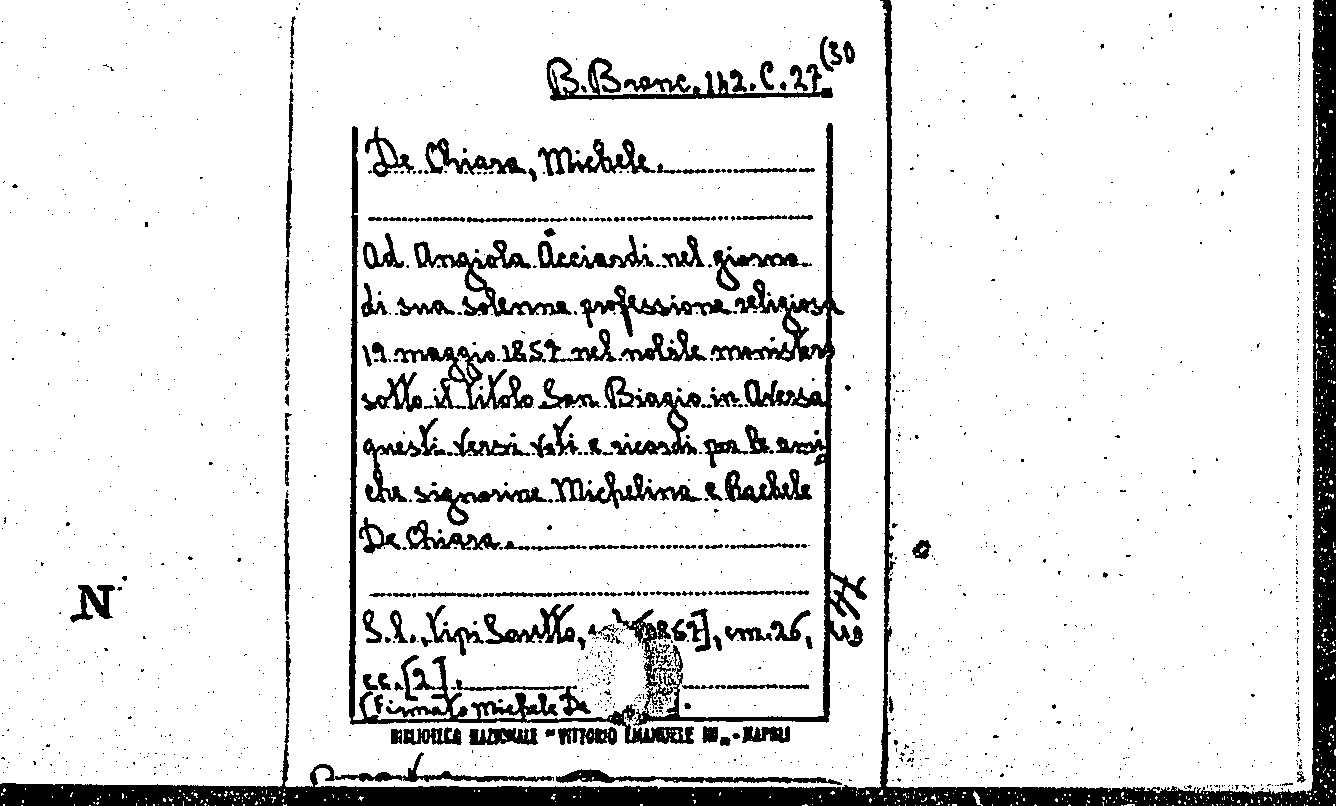 B. Branc. 142. C. 27 (30
De Chiara, Michele.
Ad Angiola Acciardi nel giorno
di sua solenne professione religiosa
19 maggio 1857 nel nobile monistero
sotto il titolo San Biagio in Aversa
questi versi voti e ricordi per le ami
che signorine Michelina e Rachele
De Chiara.
S. l., tipi cm. 26,
cc. [2].
(Firmato Michele De
BIBLIOTECA NAZIONALE "VITTORIO EMANUELE III" - NAPOLI
N